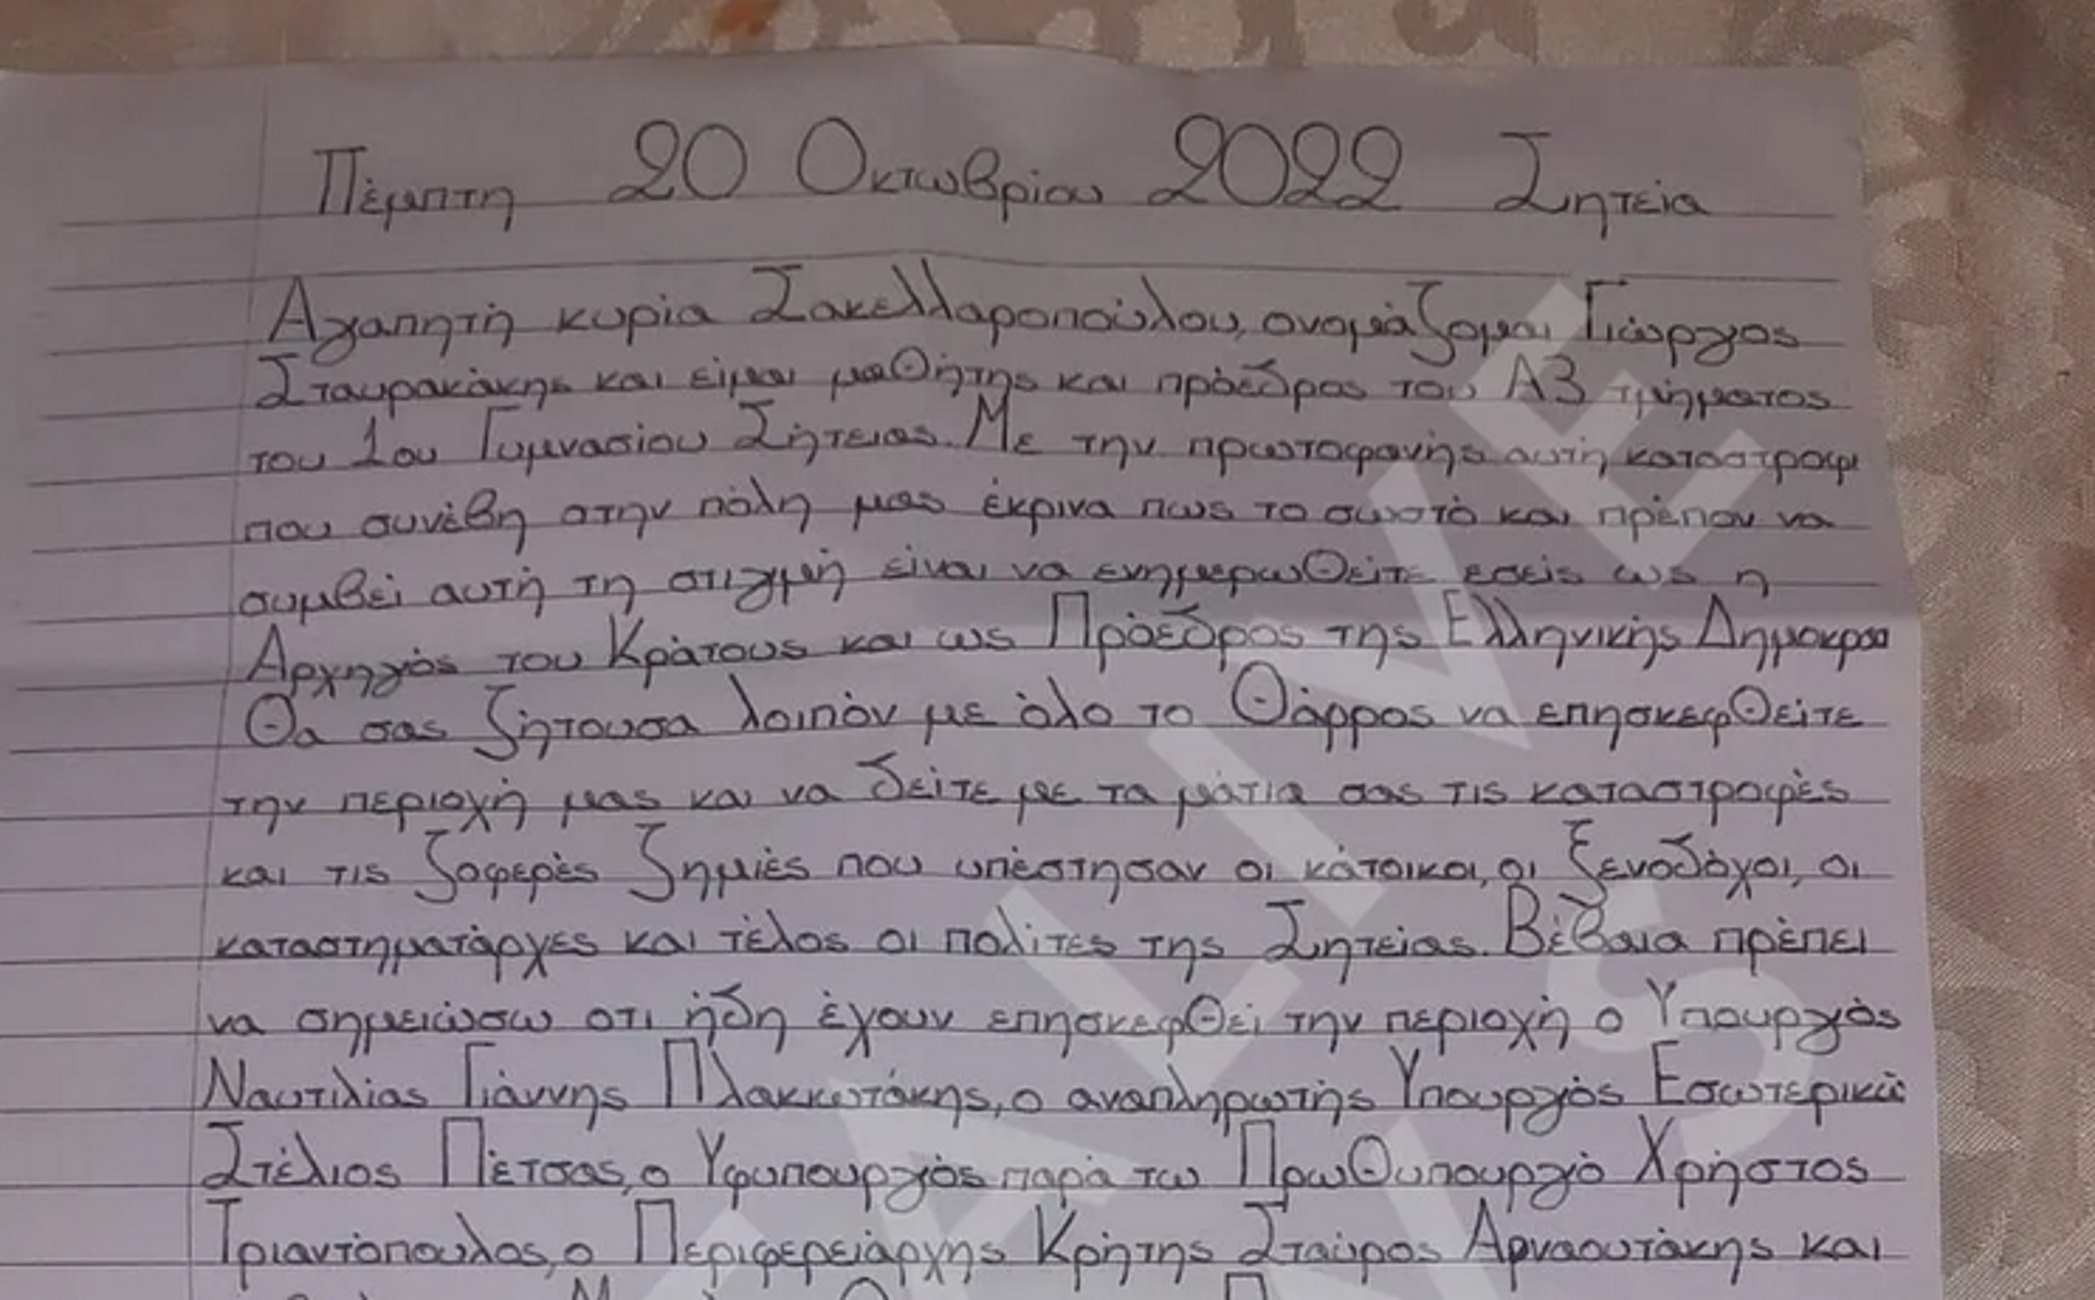 Πέμπτη 20 Οκτωβρίου 2022 Σητεία
Αγαπητή κυρία Σακελλαροπούλου, ονομάζομαι Γιώργος
Σταυρακάκης και είμαι μαθήτης και πρόεδρος του Α3 τμήματος
του 1ου Γυμνασίου Σήτειας. Με την πρωτοφανής αυτή καταστροφι
που συνέβη στην πόλη μας έκρινα πως το σωστό και πρέπον να
συμβεί αυτή τη στιγμή είναι να ενημερωθείτε εσείς ως η
Αρχηγός του Κράτους και ως Πρόεδρος της Ελληνικής
Θα σας ζήτουσα λοιπόν με όλο το Θάρρος να επησκεφθείτε
την περιοχή μας και να δείτε με τα μάτια σας τις καταστροφές
και τις ζοφερές ζημιές που υπέστησαν οι κάτοικοι, οι ξενοδόχοι, οι
καταστηματάρχες και τέλος οι πολίτες της Σητείας. Βέβαια πρέπει
να σημειώσω οτι ήδη έχουν επησκεφθεί την περιοχή ο Υπουργός
Ναυτιλίας Γιάννης Πλακιωτάκης, ο αναπληρωτής Υπουργός
Στέλιος Πέτσας, ο Υφυπουργός παρά τω Πρωθυπουργό Χρήστος
Τριαντόπουλος, ο Περιφερειάρχης Κρήτης Σταύρος Αρναουτάκης και